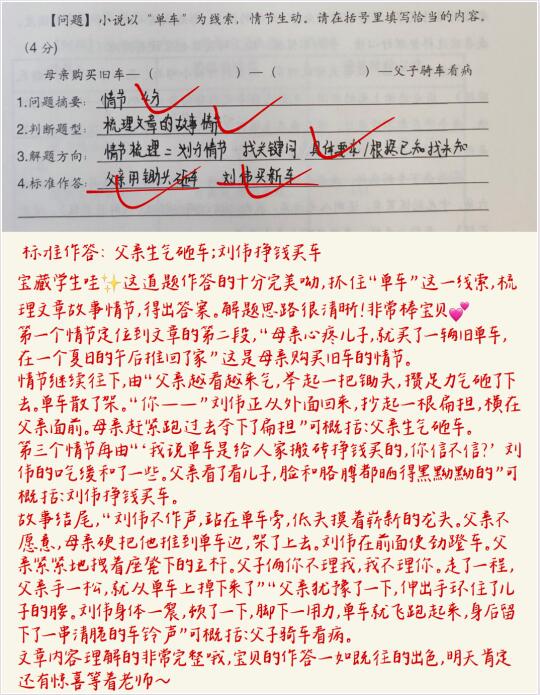 【问题】小说以“单车”为线索，情节生动。请在括号里填写恰当的内容。
（4 分）
母亲购买旧车—（ ）—（ ）—父子骑车看病
1.问题摘要：情节 4分
2.判断题型：梳理文章的故事情节
3.解题方向：情节梳理＝划分情节 找关键词 具体要求/根据已知找未知
4.标准作答：父亲用锄头砸车 刘伟买新车
标准作答：父亲生气砸车;刘伟挣钱买车
宝藏学生哇✨这道题作答的十分完美呦,抓住“单车”这一线索,梳
理文章故事情节,得出答案。解题思路很清晰!非常棒宝贝💕
第一个情节定位到文章的第二段,“母亲心疼儿子,就买了一辆旧单车,
在一个夏日的午后推回了家”这是母亲购买旧车的情节。
情节继续往下,由“父亲越看越来气,举起一把锄头,攒足力气砸了下
去。单车散了架。“你——”刘伟正从外面回来,抄起一根扁担,横在
父亲面前。母亲赶紧跑过去夺下了扁担”可概括:父亲生气砸车。
第三个情节再由“‘我说单车是给人家搬砖挣钱买的,你信不信?’刘
伟的口气缓和了一些。父亲看了看儿子,脸和胳膊都晒得黑黝黝的”可
概括:刘伟挣钱买车。
故事结尾,“刘伟不作声,站在单车旁,低头摸着崭新的龙头。父亲不
愿意,母亲硬把他推到单车边,架了上去。刘伟在前面使劲蹬车。父
亲紧紧地拽着座凳下的立杆。父子俩你不理我,我不理你。走了一程,
父亲手一松,就从单车上掉下来了”“父亲犹豫了一下,伸出手环住了儿
子的腰。刘伟身体一震,顿了一下,脚下一用力,单车就飞跑起来,身后留
下了一串清脆的车铃声”可概括:父子骑车看病。
文章内容理解的非常完整哦,宝贝的作答一如既往的出色,明天肯定
还有惊喜等着老师～